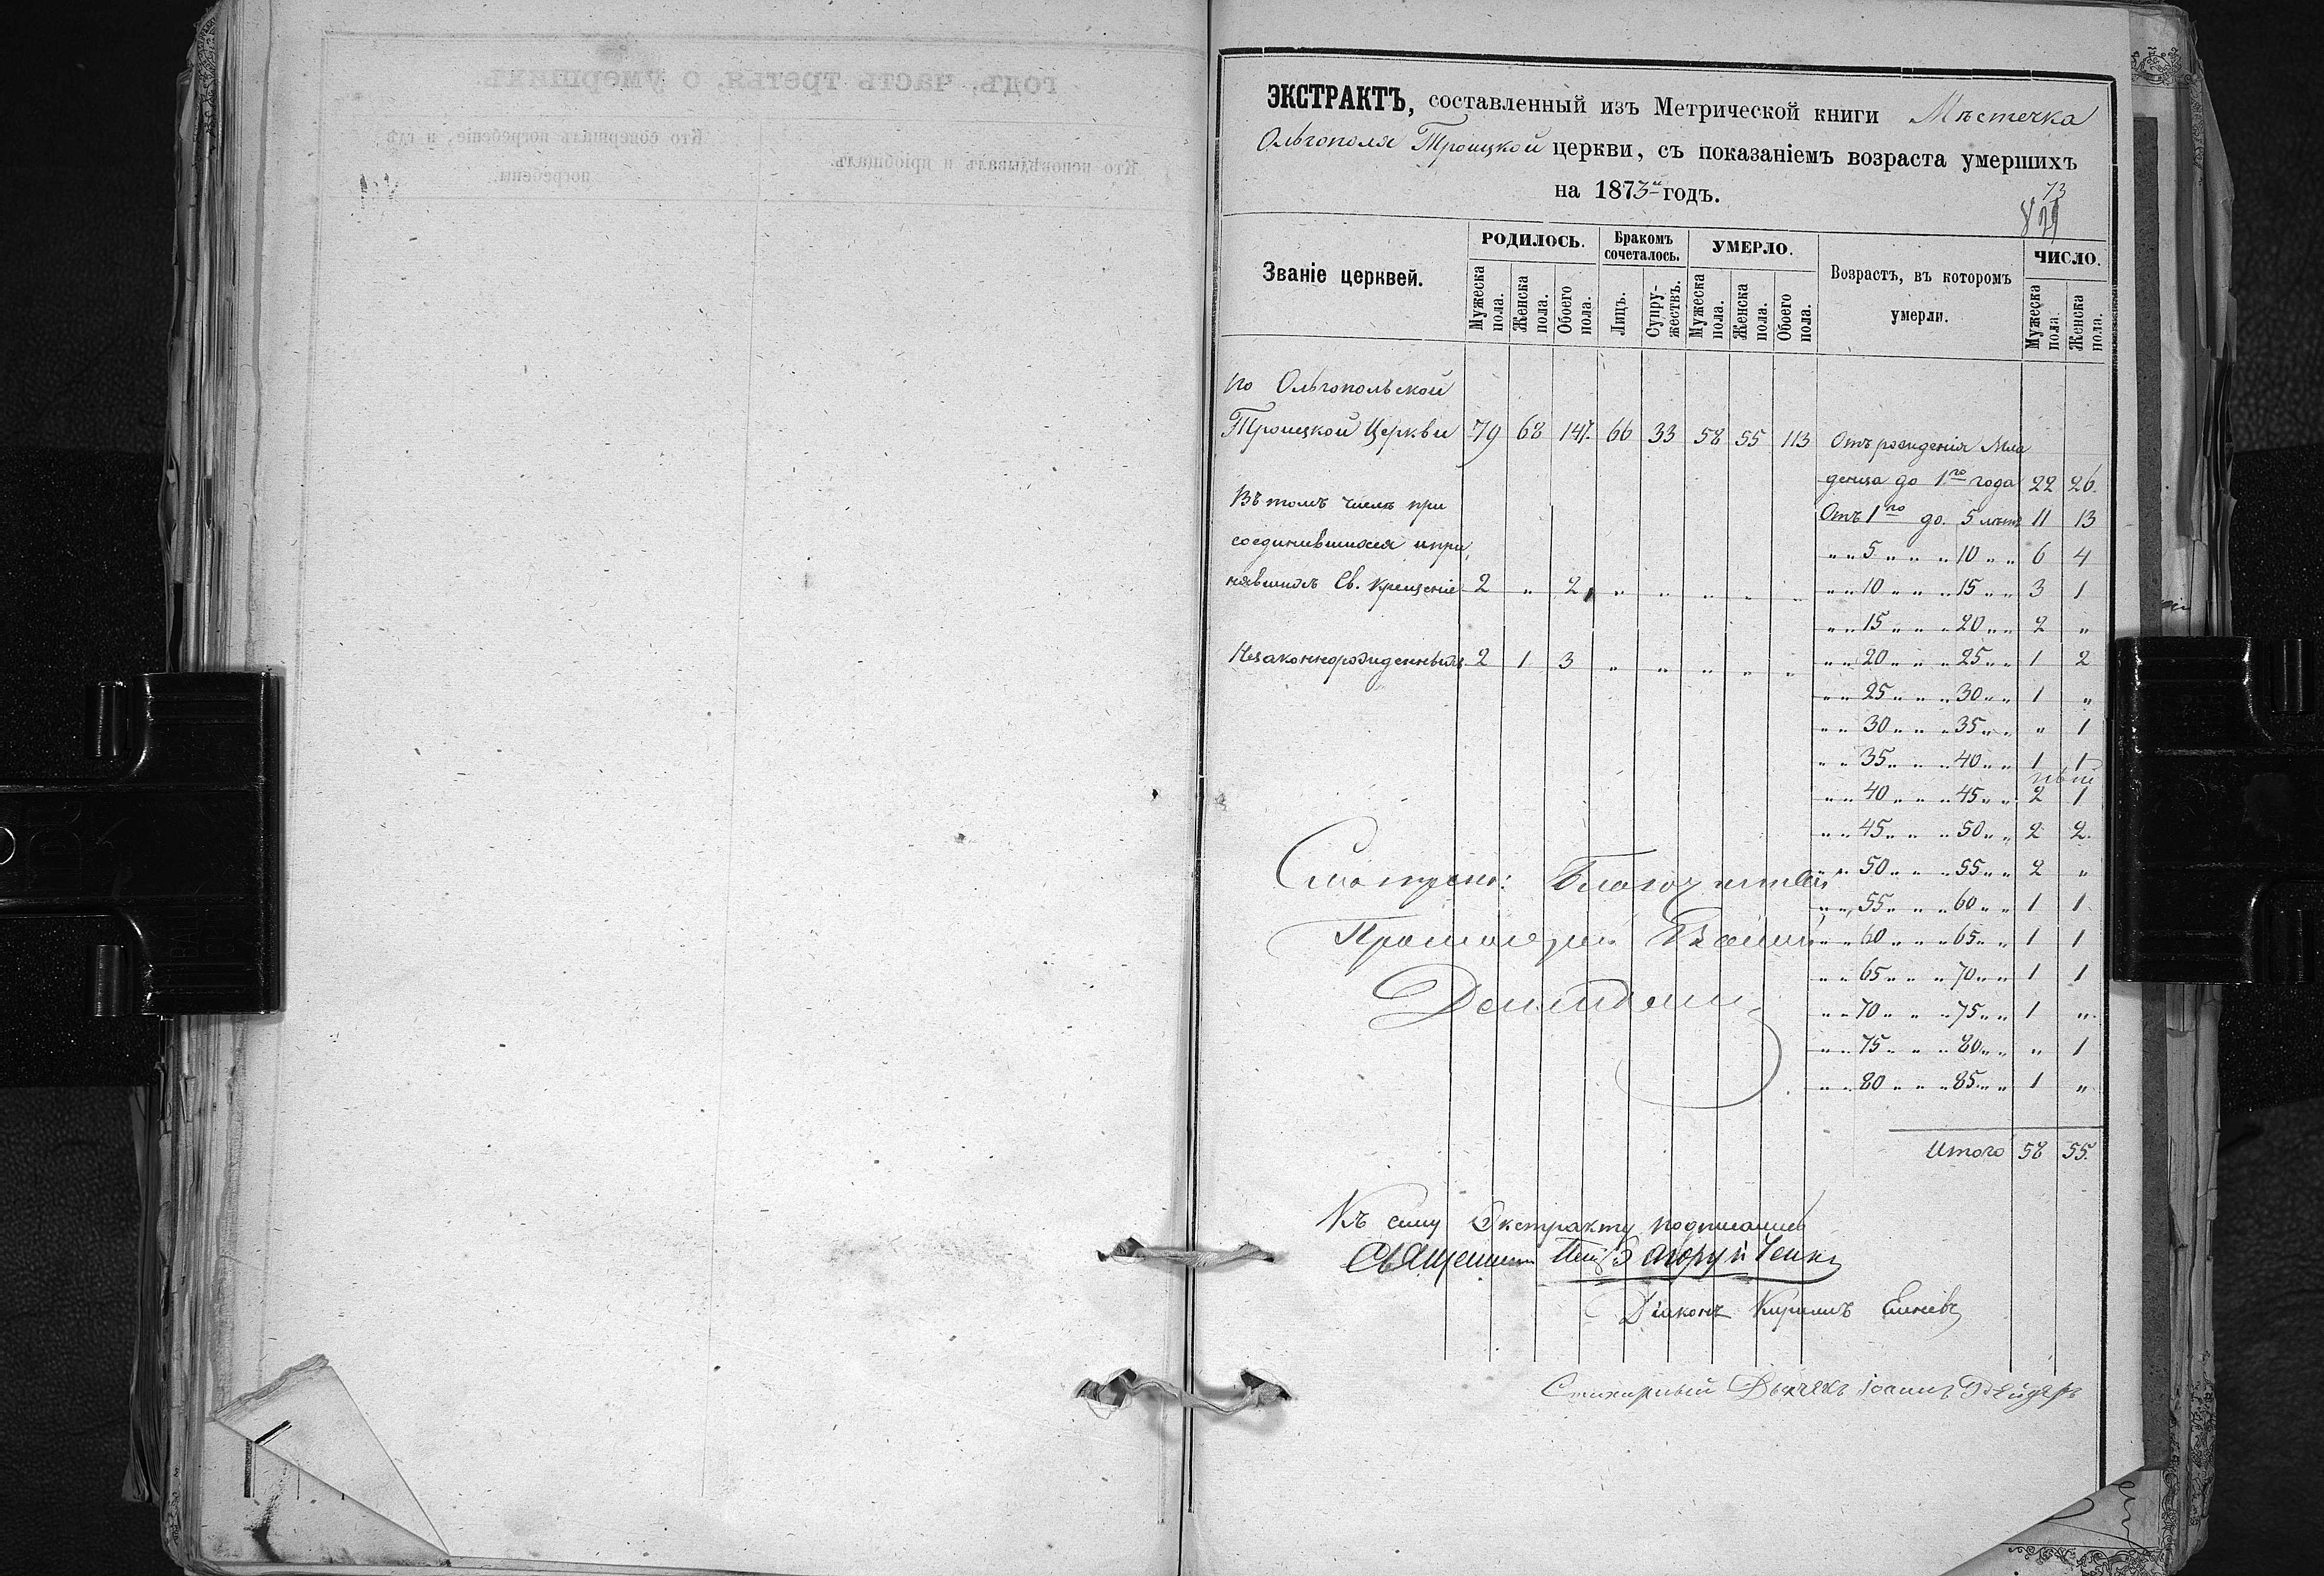 ЭКСТРАКТЪ, составленный изъ Метрической книги Мѣстечка
Ольгополя Троицкой церкви, съ показаніемъ возраста умершихъ
на 1873й годъ.
73
Званіе церквей. РОДИЛОСЬ. Бракомъ сочеталось. УМЕРЛО. Возрастъ, въ которомъ умерли. ЧИСЛО.
Мужеска пола. Женска пола. Обоего пола. Лицъ. Супружествъ. Мужеска пола. Женска пола. Обоего пола. Мужеска пола. Женска пола.
по Ольгопольской
Троицкой Церкви 79 68 147. 66 33 58 55 113 Отъ рожденія Мла
денца до 1го года 22 26.
Въ томъ числѣ при
Отъ 1го до 5 лѣтъ 11 13
соединившихся и при
„ „ 5 „ „ „ 10 „ „ 6 4
нявшихъ Св. Крещеніе 2 „ 2 „ „ „ „ „
„ „ 10 „ „ „ 15 „ „ 3 1
„ „ 15 „ „ „ 20 „ „ 2 „
Незаконнорожденныхъ 2 1 3 „ „ „ „ „
„ „ 20 „ „ „ 25 „ „ 1 2
„ „ 25 „ „ „ 30 „ „ 1 „
„ „ 30 „ „ „ 35 „ „ „ 1
„ „ 35 „ „ „ 40 „ „ 1 1
„ „ 40 „ „ „ 45 „ „ 2 1
„ „ 45 „ „ „ 50 „ „ 2 2.
„ „ 50 „ „ „ 55 „ „ 2 „
„ „ 55 „ „ „ 60 „ „ 1 1
„ „ 60 „ „ „ 65 „ „ 1 1
„ „ 65 „ „ „ 70 „ „ 1 1
„ „ 70 „ „ „ 75 „ „ 1 „
„ „ 75 „ „ „ 80 „ „ „ 1
„ „ 80 „ „ „ 85 „ „ 1 „
Итого 58 55.
Къ сему Экстракту подписались
Діаконъ Кириллъ
Стихарный Дьячекъ Іоаннъ